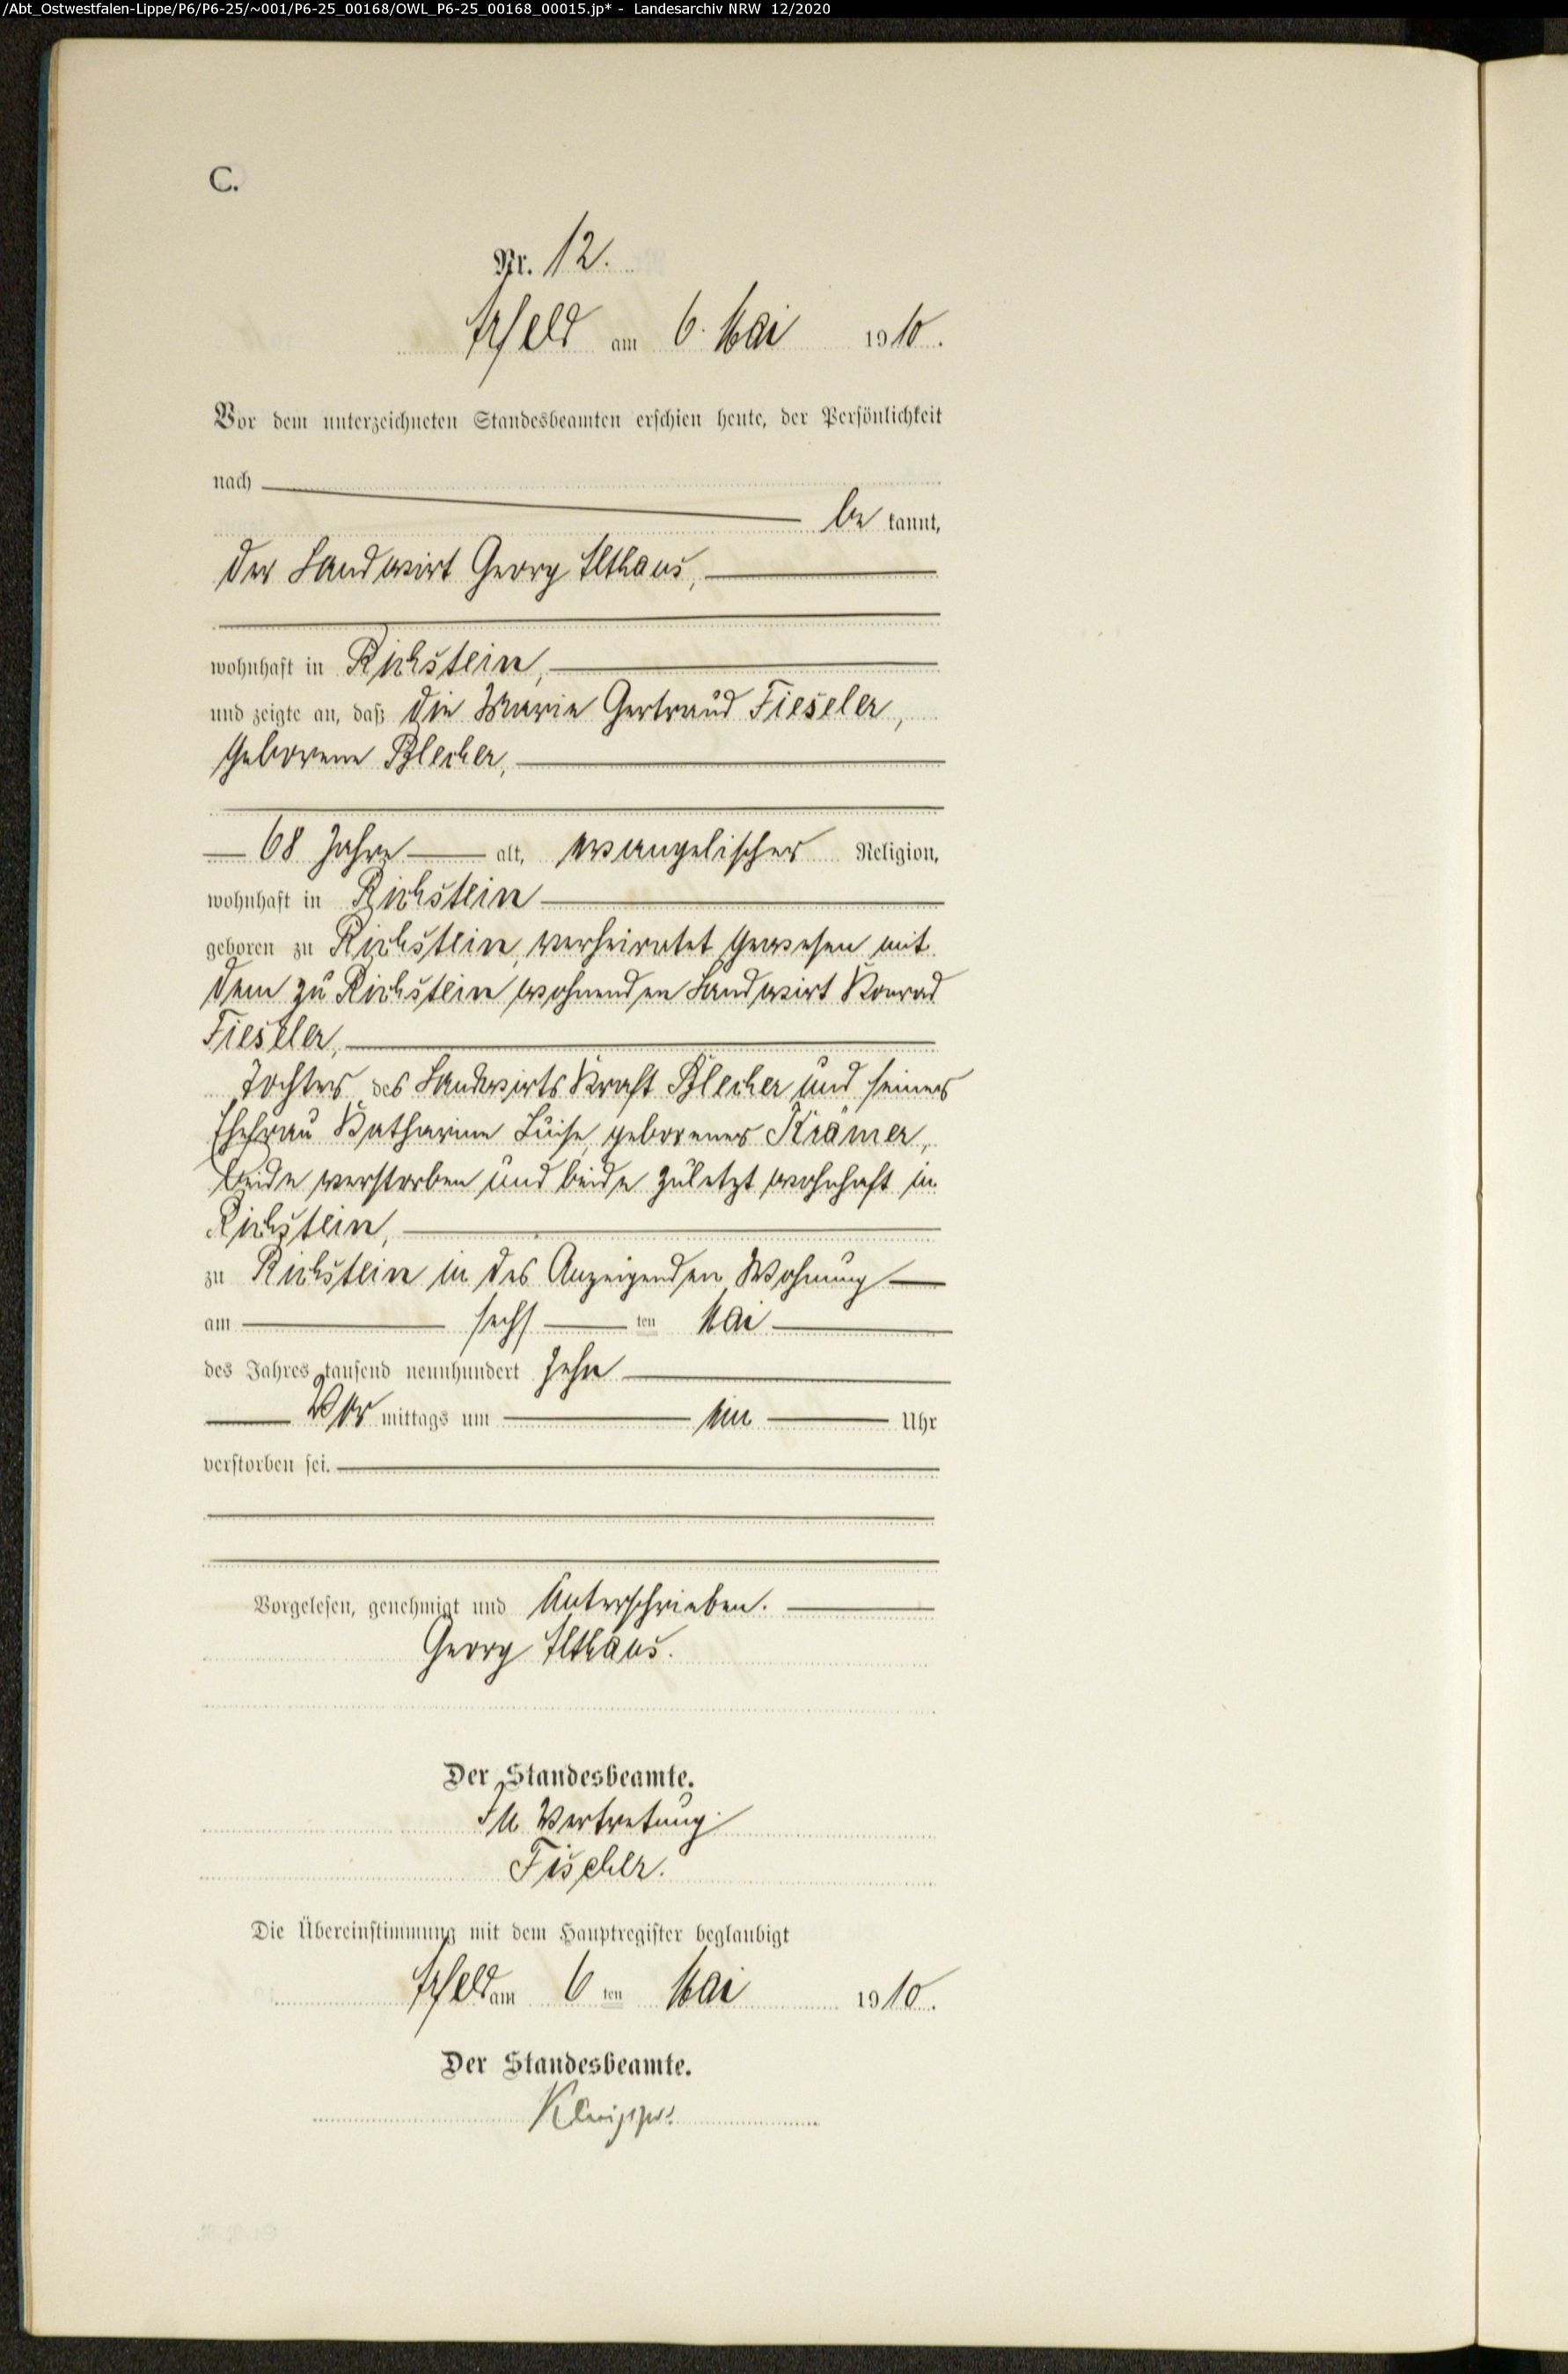 /Abt_Ostwestfalen-Lippe/P6/P6-25/~001/P6-25_00168/OWL_P6-25_00168_00015.jp* - Landesarchiv NRW 12/2020
C.
Nr. 12.
Arfeld am 6. Mai 1910.
Vor dem unterzeichneten Standesbeamten erschien heute, der Persönlichkeit
nach
be kannt,
der Landwirt Georg Althaus,
wohnhaft in Richstein,
und zeigte an, daß die Marie Gertraud Fieseler,
geborene Blecher,
68 Jahre alt, evangelischer Religion,
wohnhaft in Richstein
geboren zu Richstein, verheiratet gewesen mit
dem zu Richstein wohnenden Landwirt Konrad
Fieseler,
Tochter des Landwirts Kraft Blecher und seiner
Ehefrau Katharine Luise, geborener Krämer,
beide verstorben und beide zuletzt wohnhaft in
Richstein,
zu Richstein in des Anzeigenden Wohnung
am sechs ten Mai
des Jahres tausend neunhundert zehn
Vor mittags um ein Uhr
verstorben sei.
Vorgelesen, genehmigt und unterschrieben.
Georg Althaus.
Der Standesbeamte.
In Vertretung
Fischer.
Die Übereinstimmung mit dem Hauptregister beglaubigt
Arfeld am 6 ten Mai 1910.
Der Standesbeamte.